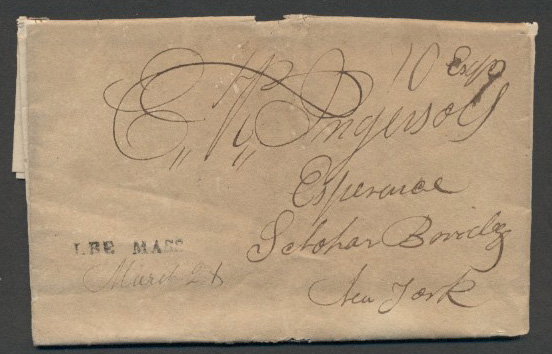 10
E,, H,, Ingersoll
Esperance
Schohar Bridg
New York
LEE MASS
March 28